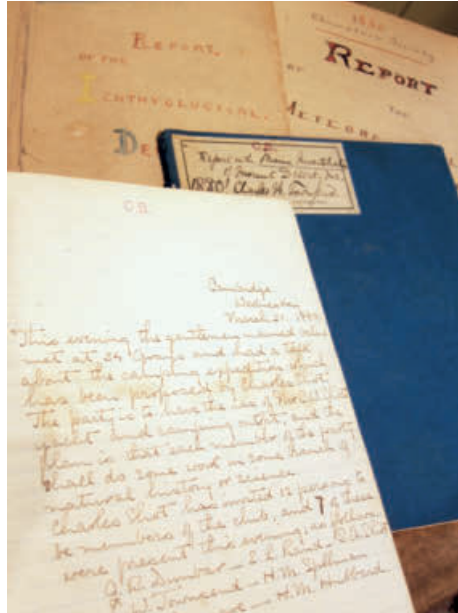 REPORT.
OF THE
ICHTHYOLOGICAL
DE
1880
Champlain Society
REPORT
OF THE
METEORO
C.S.
of Mount Desert, Me.
1880! Charles H. Townsend
C.S.
Cambridge
Wednesday
March 31, 1880
"This evening the gentlemen named below
met at 34 Grays and had a talk
about the camping expedition that
has been proposed by Charles Eliot.
The party is to have the use of
yacht and camping outfit and the
plan is that each member of the party
shall do some work in some branch of
natural history or science.
Charles Eliot has invited 12 persons to
be members of the club, and 7 of these
were present this evening; as follows
J. R. Dunbar - E. L. Rand -
F. W. Townsend - H. M. Spelman
H. M. Hubbard